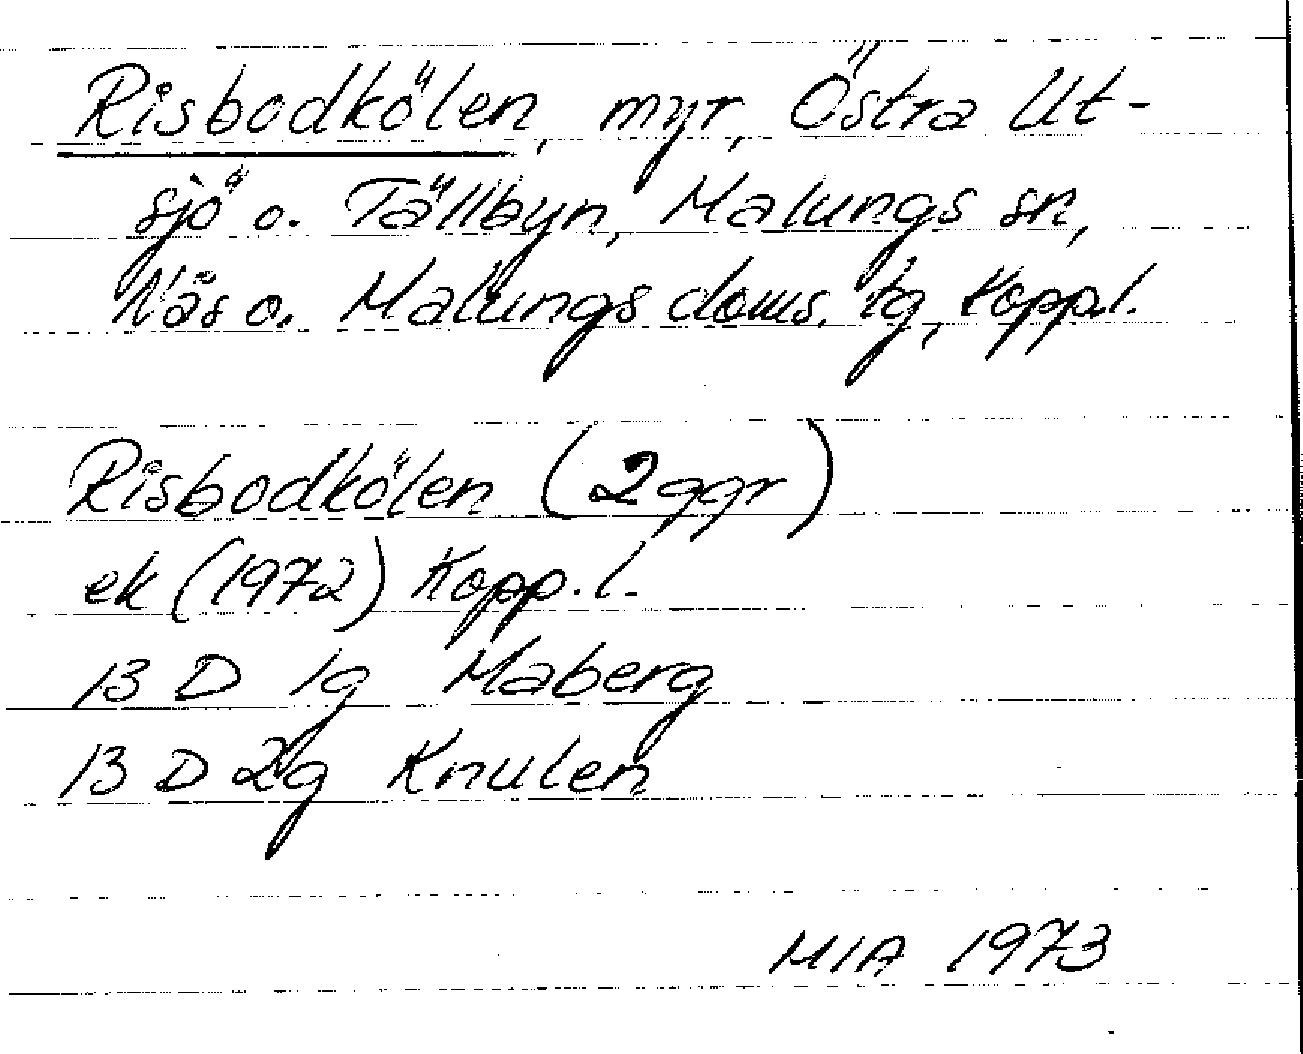 Risbodkölen, myr, Östra Ut-
sjö o. Tällbyn, Malungs sn,
Näs o. Malungs doms. tg, Kopp.l.
Risbodkölen (2 ggr)
ek (1972) Kopp.l.
13 D 1g Maberg
13 D 2g Knulen
MIA 1973